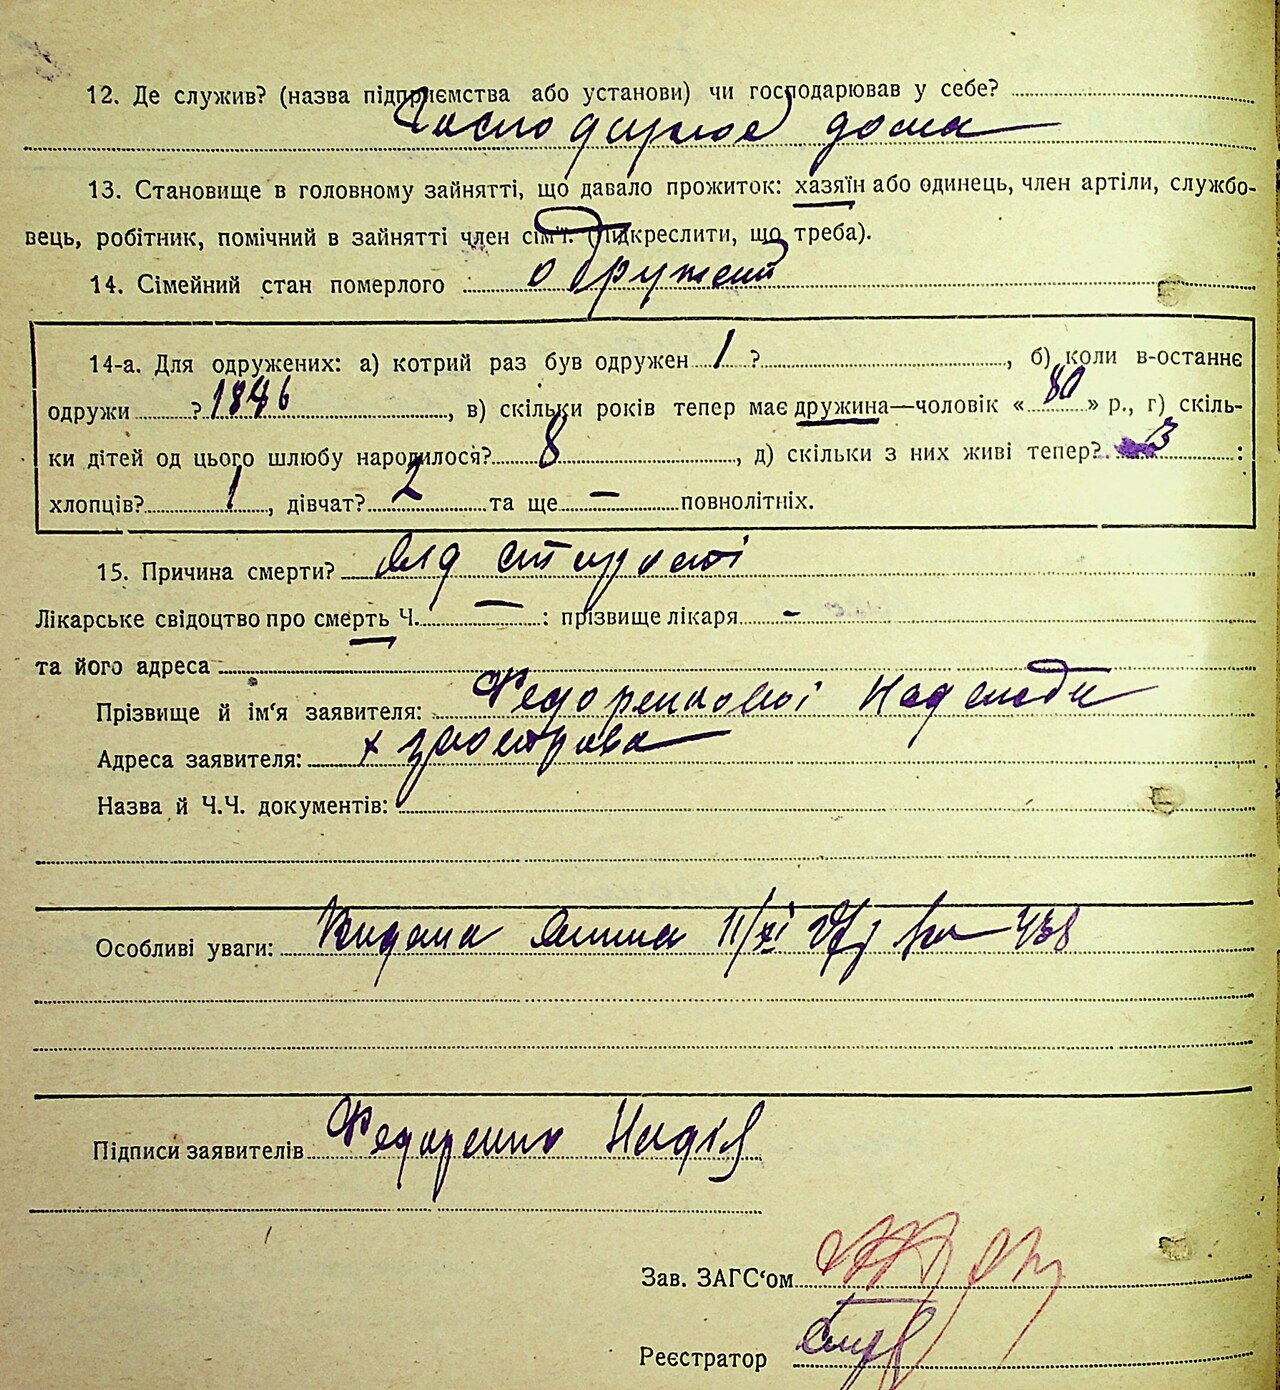 12. Де служив? (назва підприємства або установи) чи господарював у себе?
Господарював дома
13. Становище в головному зайнятті, що давало прожиток: хазяїн або одинець, член артіли, службо-
вець, робітник, помічний в зайнятті член сім'ї. (Підкреслити, що треба).
14. Сімейний стан померлого одружений
14-а. Для одружених: а) котрий раз був одружен 1 ?, б) коли в-останнє
одружи ? 1886, в) скільки років тепер має дружина—чоловік « 80 » р., г) скіль-
ки дітей од цього шлюбу народилося? 8, д) скільки з них живі тепер? 3 :
хлопців? 1, дівчат? 2 та ще — повнолітніх.
15. Причина смерти? Від старості
Лікарське свідоцтво про смерть Ч. — : прізвище лікаря -
та його адреса
Прізвище й ім'я заявителя: Федоренкової Надежди
Адреса заявителя: х
Назва й Ч.Ч. документів:
Особливі уваги: 11/XI 438
Підписи заявителів Федоренко Надія
Зав. ЗАГС'ом
Реєстратор